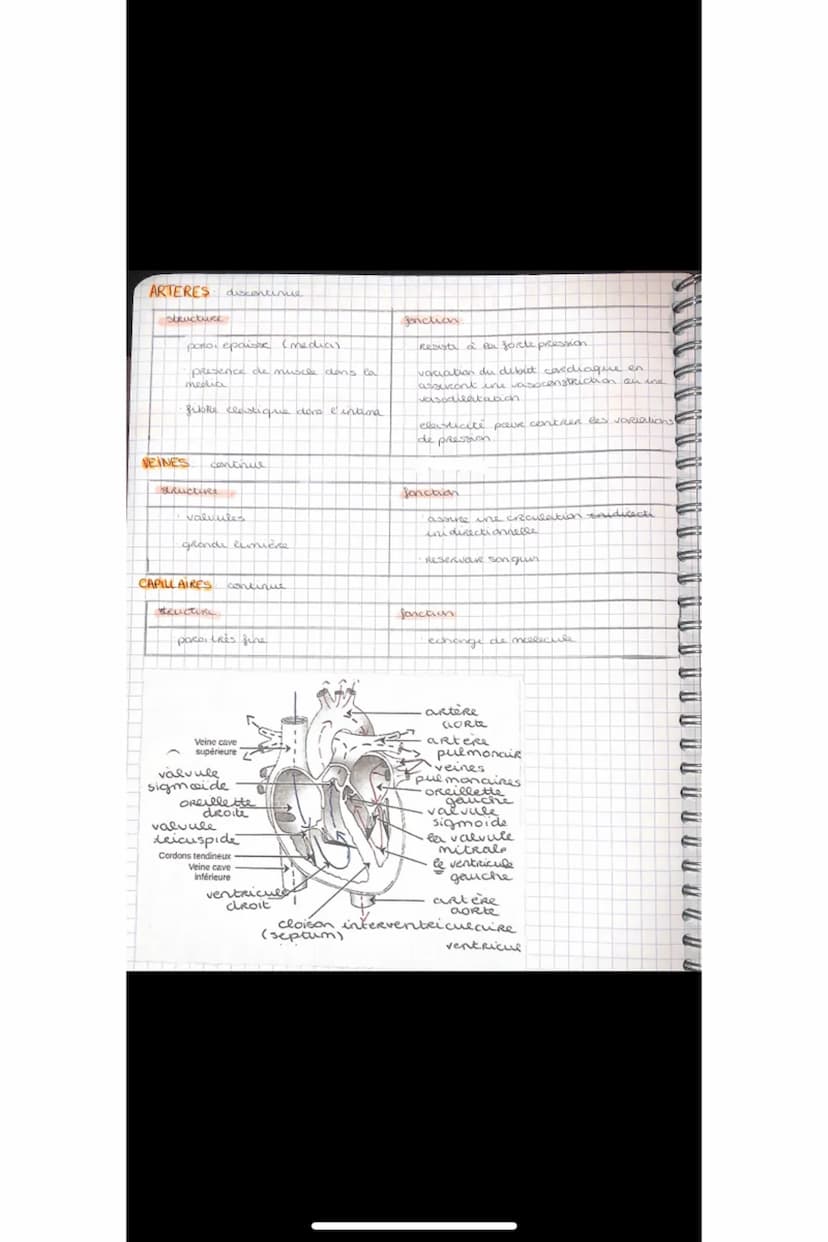 ARTERES discontinue
structure
fonction
paroi epaisse (media)
résiste à la forte pression
présence de muscle dans la
media
variation du débit cardiaque en
assurant une vasoconstriction ou une
vasodilatation
fibre elastique dans l'intima
elasticité pour contrer les variations
de pression
VEINES continue
structure
fonction
valvules
assure une circulation unidirecti
unidirectionnelle
grande lumière
reservoir sanguin
CAPILLAIRES continue
structure
fonction
paroi très fine
echange de molecule
artère
aorte
Veine cave
supérieure
artère
pulmonair
veines
pulmonaires
valvule
sigmoide
oreillette
gauche
oreillette
droite
valvule
sigmoide
valvule
tricuspide
la valvule
mitrale
Cordons tendineux
Veine cave
inférieure
le ventricule
gauche
ventricule
droit
artère
aorte
cloison interventriculaire
(septum)
ventricul